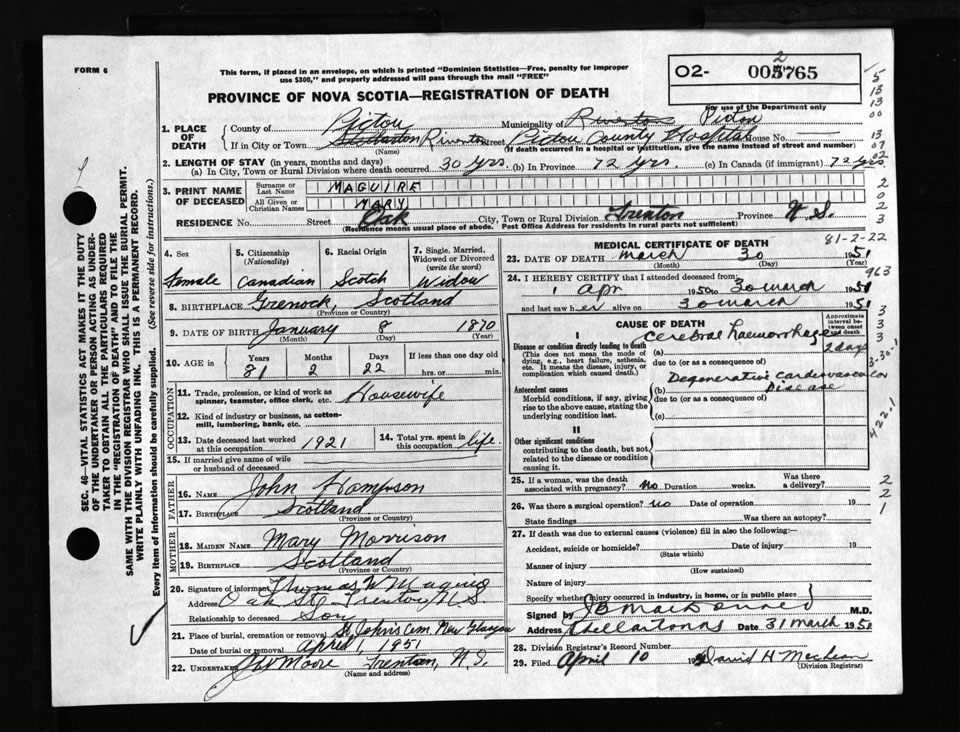 FORM 6
This form, if placed in an envelope, on which is printed "Dominion Statistics—Free, penalty for improper
use $300," and properly addressed will pass through the mail "FREE"
PROVINCE OF NOVA SCOTIA—REGISTRATION OF DEATH
O2- 005765
2
For use of the Department only
1. PLACE OF DEATH
County of Pictou Municipality of Riverton Pictou
If in City or Town Stellarton Riverton Street Pictou County Hospital House No.
(Name) (If death occurred in a hospital or institution, give the name instead of street and number)
2. LENGTH OF STAY (in years, months and days)
(a) In City, Town or Rural Division where death occurred 30 yrs. (b) In Province 72 yrs. (c) In Canada (if immigrant) 72 yrs
3. PRINT NAME OF DECEASED
Surname or Last Name MAGUIRE
All Given or Christian Names MARY
RESIDENCE No. Street Oak City, Town or Rural Division Trenton Province N.S.
(Residence means usual place of abode. Post Office Address for residents in rural parts not sufficient)
4. Sex
Female
5. Citizenship (Nationality)
Canadian
6. Racial Origin
Scotch
7. Single, Married, Widowed or Divorced (write the word)
Widow
8. BIRTHPLACE Grenock, Scotland
(Province or Country)
9. DATE OF BIRTH January 8 1870
(Month) (Day) (Year)
10. AGE in Years Months Days If less than one day old
81 2 22 hrs. or min.
OCCUPATION
11. Trade, profession or kind of work as spinner, teamster, office clerk, etc. Housewife
12. Kind of industry or business, as cotton-mill, lumbering, bank, etc.
13. Date deceased last worked at this occupation 1921
14. Total yrs. spent in this occupation life
15. If married give name of wife or husband of deceased
FATHER
16. NAME John
17. BIRTHPLACE Scotland
(Province or Country)
MOTHER
18. MAIDEN NAME Mary Morrison
19. BIRTHPLACE Scotland
(Province or Country)
20. Signature of informant Thomas W Maguire
Address Oak St. Trenton N.S.
Relationship to deceased Son
21. Place of burial, cremation or removal St John's Cem. New Glasgow
Date of burial or removal April 1, 1951
22. UNDERTAKER Moore Trenton, N.S.
(Name and address)
MEDICAL CERTIFICATE OF DEATH
81-2-22
23. DATE OF DEATH March 30 1951
(Month) (Day) (Year)
24. I HEREBY CERTIFY that I attended deceased from:
1 Apr 1950 to 30 March 1951
and last saw her alive on 30 March 1951
CAUSE OF DEATH
Approximate interval between onset and death
Disease or condition directly leading to death
(This does not mean the mode of dying, e.g., heart failure, asthenia, etc. It means the disease, injury, or complication which caused death.)
(a) Cerebral Haemorrhage 2 days
due to (or as a consequence of)
Antecedent causes
Morbid conditions, if any, giving rise to the above cause, stating the underlying condition last.
(b) Degenerative Cardiovascular Disease
due to (or as a consequence of)
(c)
II
Other significant conditions
contributing to the death, but not related to the disease or condition causing it.
25. If a woman, was the death associated with pregnancy? No Duration weeks. Was there a delivery?
26. Was there a surgical operation? No Date of operation 19
State findings Was there an autopsy?
27. If death was due to external causes (violence) fill in also the following:
Accident, suicide or homicide? Date of injury 19
(State which)
Manner of injury
(How sustained)
Nature of injury
Specify whether injury occurred in industry, in home, or in public place
Signed by M.D.
Address Stellarton NS Date 31 March 1951
28. Division Registrar's Record Number
29. Filed April 10 David H
(Division Registrar)
SEC. 46—VITAL STATISTICS ACT MAKES IT THE DUTY
OF THE UNDERTAKER OR PERSON ACTING AS UNDER-
TAKER TO OBTAIN ALL THE PARTICULARS REQUIRED
IN THE "REGISTRATION OF DEATH" AND TO FILE THE
SAME WITH THE DIVISION REGISTRAR WHO SHALL ISSUE THE BURIAL PERMIT.
WRITE PLAINLY WITH UNFADING INK. THIS IS A PERMANENT RECORD.
Every item of information should be carefully supplied. (See reverse side for instructions.)
5
13
13
00
13
07
02
2
0
2
3
963
3
3
3
3-30-1
422.1
2
2
1